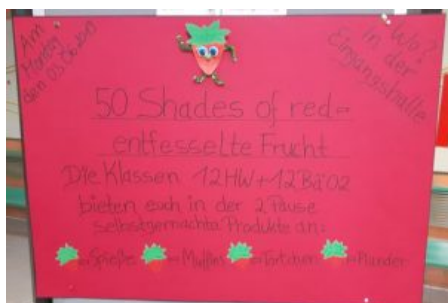 Am
Montag
den 03.06.2013
Wo?
in der
Eingangshalle
50 Shades of red -
entfesselte Frucht
Die Klassen 12HW+12Bä02
bieten euch in der 2. Pause
selbstgemachte Produkte an:
-Spieße -Muffins -Törtchen -Plunder